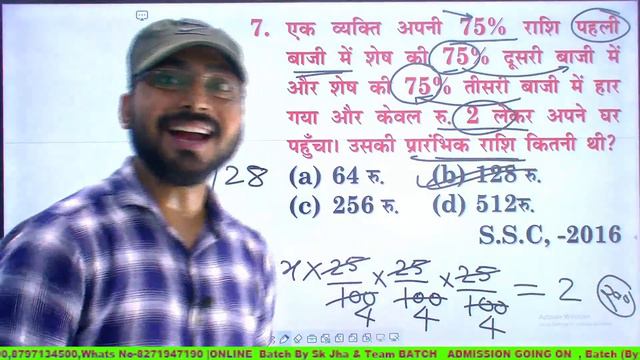 7. एक व्यक्ति अपनी 75% राशि पहली
बाजी में शेष की 75% दूसरी बाजी में
और शेष की 75% तीसरी बाजी में हार
गया और केवल रु. 2 लेकर अपने घर
पहुँचा। उसकी प्रारंभिक राशि कितनी थी?
128 (a) 64 रु. (b) 128 रु.
(c) 256 रु. (d) 512रु.
S.S.C, -2016
x × 25/100 × 25/100 × 25/100 = 2
4 4 4
Activate Windows
00,8797134500,Whats No-8271947190 |ONLINE Batch By Sk Jha & Team BATCH ADMISSION GOING ON , Batch (B